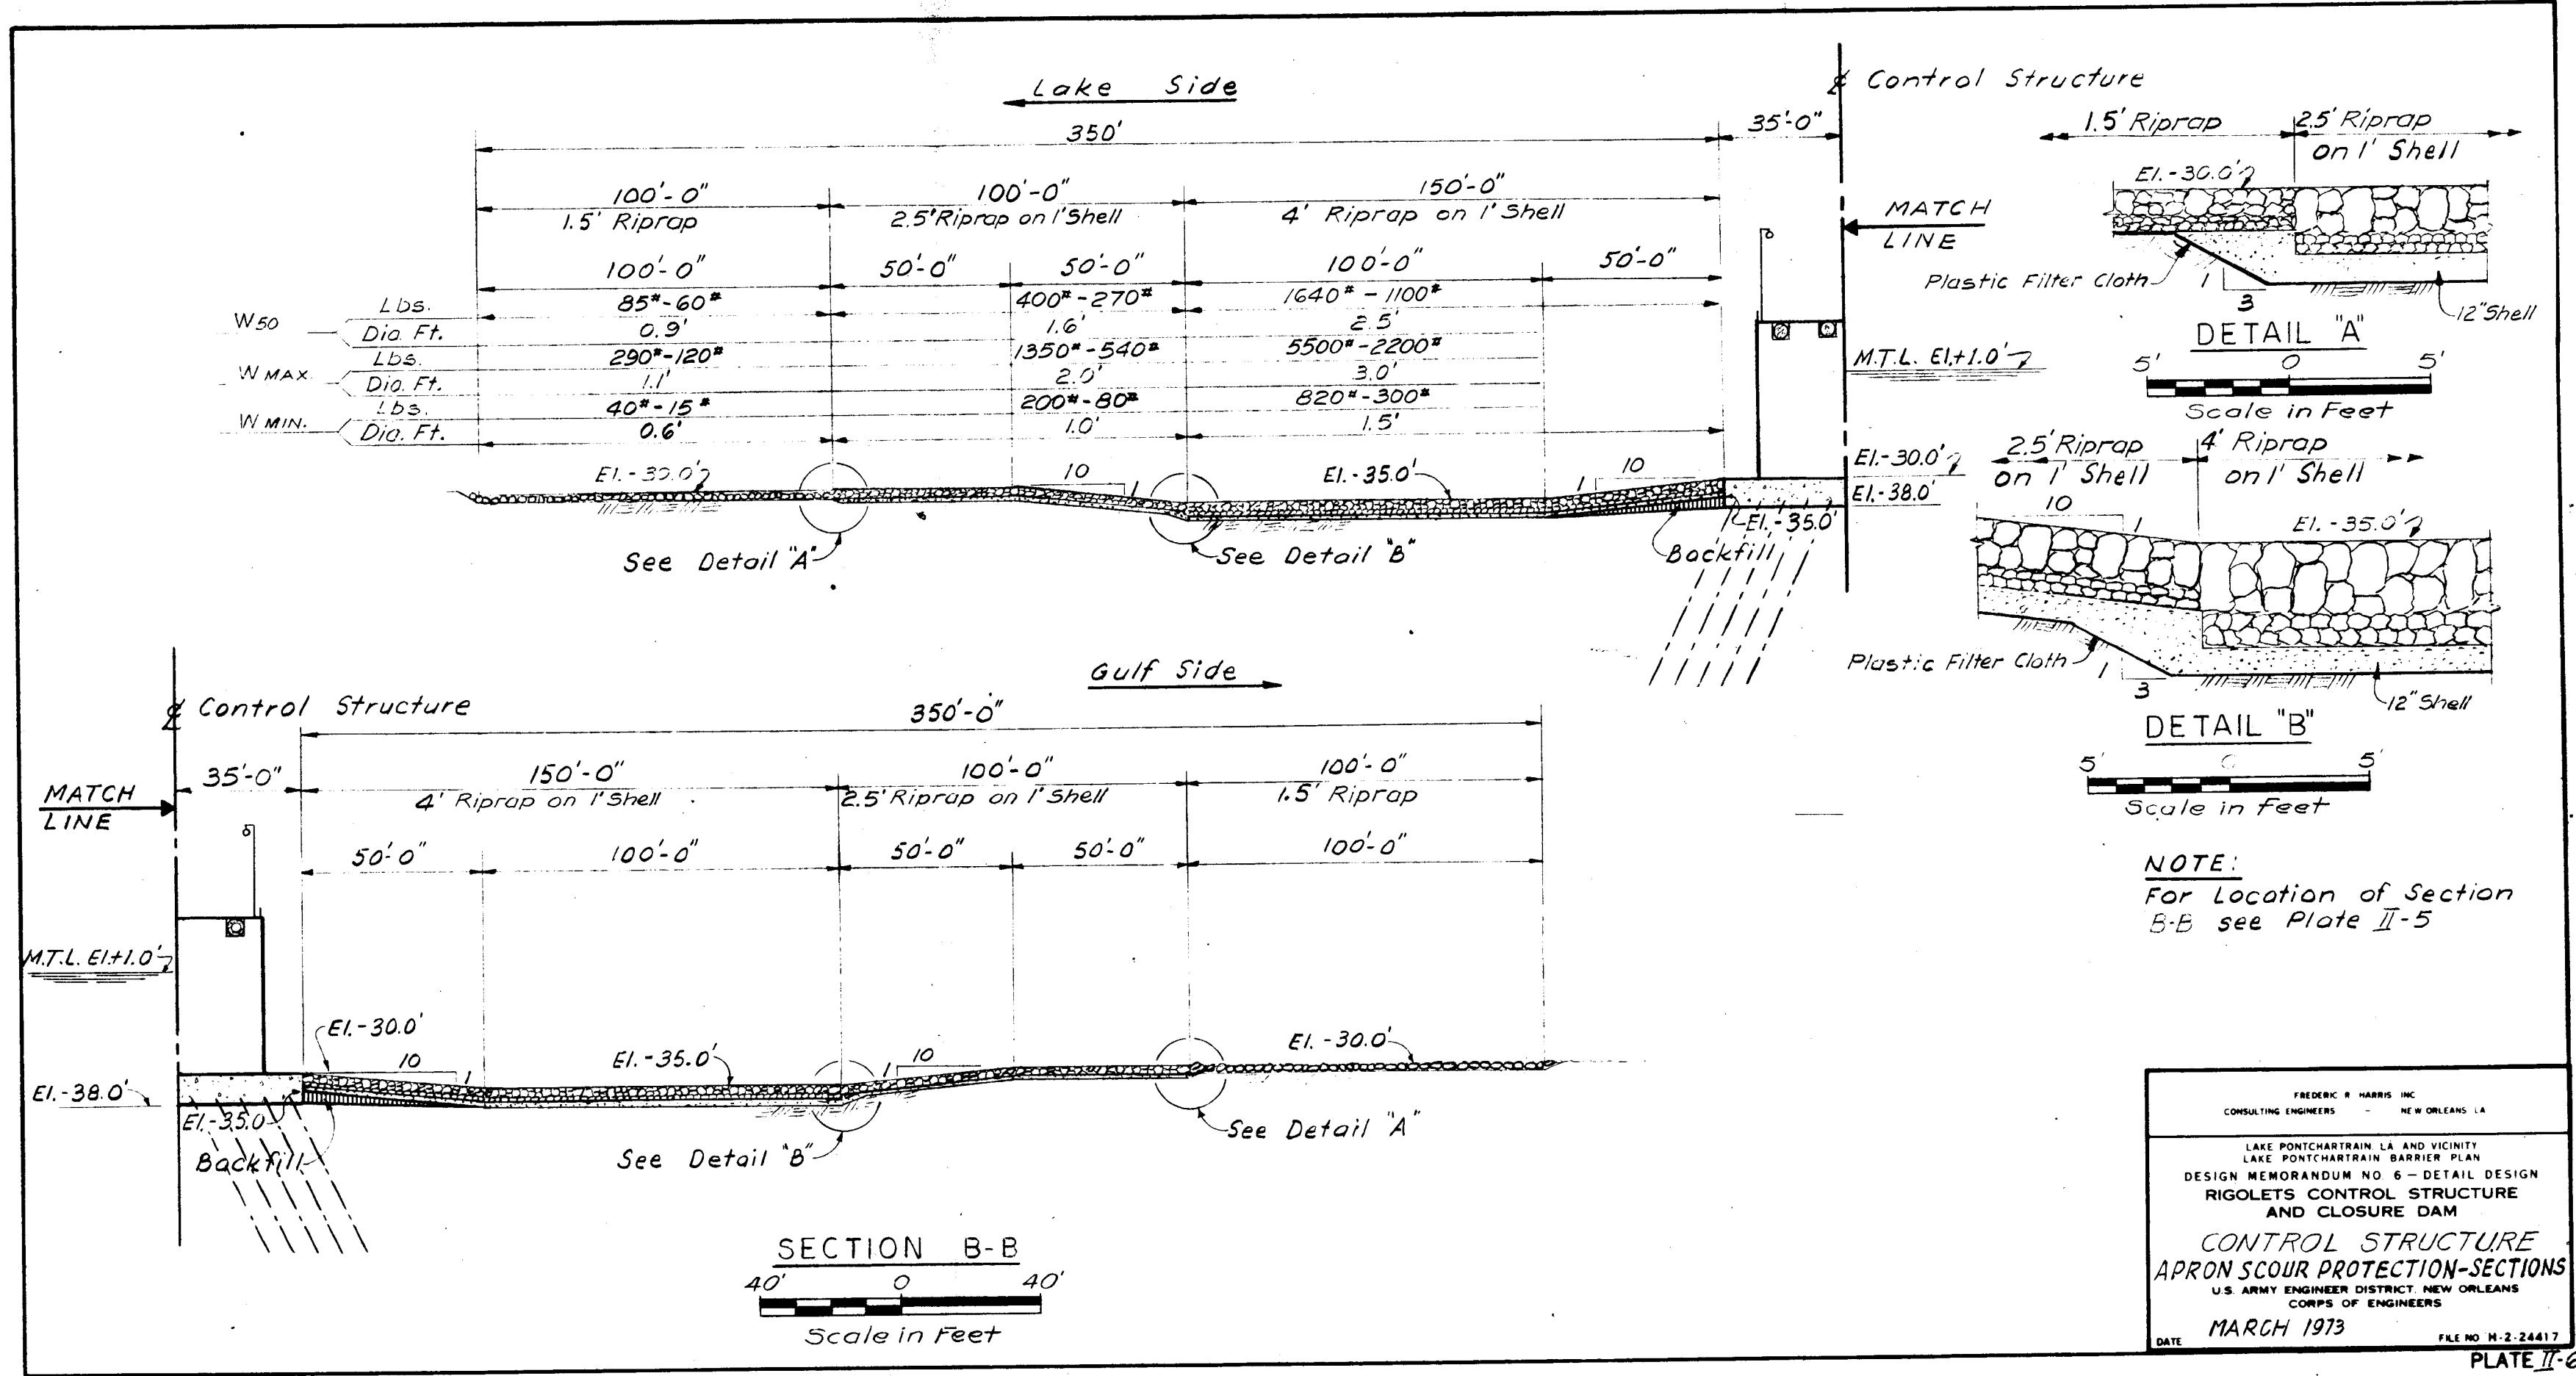 Lake Side
℄ Control Structure
350'
35'-0"
100'-0"
100'-0"
150'-0"
1.5' Riprap
2.5' Riprap on 1' Shell
4' Riprap on 1' Shell
MATCH
LINE
100'-0"
50'-0"
50'-0"
100'-0"
50'-0"
W50
Lbs.
85#-60#
400#-270#
1640#-1100#
Dia. Ft.
0.9'
1.6'
2.5'
W MAX.
Lbs.
290#-120#
1350#-540#
5500#-2200#
Dia. Ft.
1.1'
2.0'
3.0'
W MIN.
Lbs.
40#-15#
200#-80#
820#-300#
Dia. Ft.
0.6'
1.0'
1.5'
M.T.L. El.+1.0'
El.-30.0'
10
1
El.-35.0'
1
10
El.-30.0'
El.-38.0'
El.-35.0'
See Detail "A"
See Detail "B"
Backfill
1.5' Riprap
2.5' Riprap
on 1' Shell
El.-30.0'
Plastic Filter Cloth
1
3
12" Shell
DETAIL "A"
5' 0 5'
Scale in Feet
2.5' Riprap
on 1' Shell
4' Riprap
on 1' Shell
10
1
El.-35.0'
Plastic Filter Cloth
1
3
12" Shell
DETAIL "B"
5' 0 5'
Scale in Feet
Gulf Side
℄ Control Structure
350'-0"
35'-0"
150'-0"
100'-0"
100'-0"
4' Riprap on 1' Shell
2.5' Riprap on 1' Shell
1.5' Riprap
MATCH
LINE
50'-0"
100'-0"
50'-0"
50'-0"
100'-0"
M.T.L. El.+1.0'
El.-30.0'
10
1
El.-35.0'
1
10
El.-30.0'
El.-38.0'
El.-35.0
Backfill
See Detail "B"
See Detail "A"
SECTION B-B
40' 0 40'
Scale in Feet
NOTE:
For Location of Section
B-B see Plate II-5
FREDERIC R HARRIS INC
CONSULTING ENGINEERS - NEW ORLEANS LA
LAKE PONTCHARTRAIN, LA AND VICINITY
LAKE PONTCHARTRAIN BARRIER PLAN
DESIGN MEMORANDUM NO. 6 - DETAIL DESIGN
RIGOLETS CONTROL STRUCTURE
AND CLOSURE DAM
CONTROL STRUCTURE
APRON SCOUR PROTECTION-SECTIONS
U.S. ARMY ENGINEER DISTRICT, NEW ORLEANS
CORPS OF ENGINEERS
DATE MARCH 1973
FILE NO H-2-24417
PLATE II-6